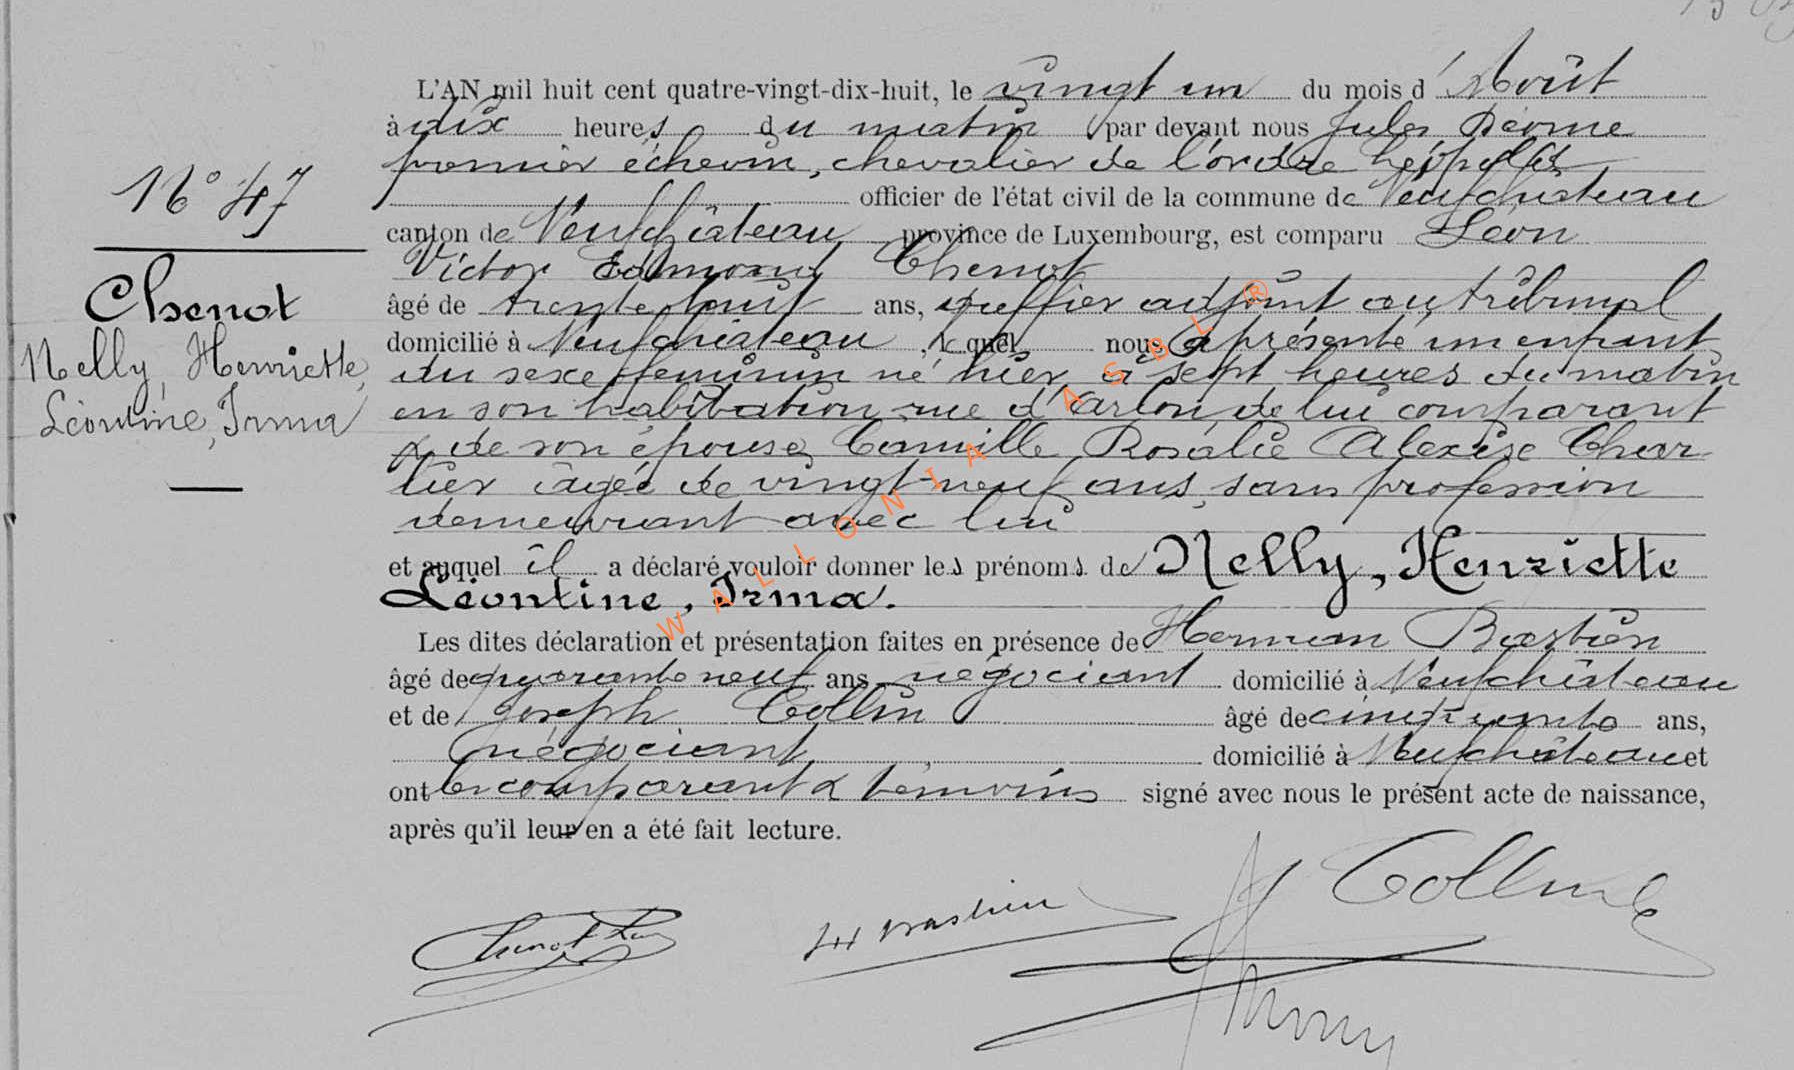 N° 47
Chenot
Nelly, Henriette,
Léontine, Irma
L'AN mil huit cent quatre-vingt-dix-huit, le vingt un du mois d'Août
à dix heures du matin par devant nous Jules
premier échevin, chevalier de l'ordre Léopold
officier de l'état civil de la commune de Neufchâteau
canton de Neufchâteau province de Luxembourg, est comparu Léon
Victor Edmond Chenot
âgé de trente huit ans, greffier adjoint au tribunal
domicilié à Neufchâteau, lequel nous a présenté un enfant
du sexe féminin né hier à sept heures du matin
en son habitation rue d'Arlon, de lui comparant
& de son épouse Camille Rosalie Alexise Char-
lier âgée de vingt-neuf ans, sans profession
demeurant avec lui
et auquel il a déclaré vouloir donner les prénoms de Nelly, Henriette
Léontine, Irma.
Les dites déclaration et présentation faites en présence de Herman Bastien
âgé de quarante neuf ans négociant domicilié à Neufchâteau
et de Joseph Collin âgé de cinquante ans,
négociant domicilié à Neufchâteau et
ont les comparant & témoins signé avec nous le présent acte de naissance,
après qu'il leur en a été fait lecture.
Chenot Léon
H Bastien
Collin
WALLONIA ASBL ®